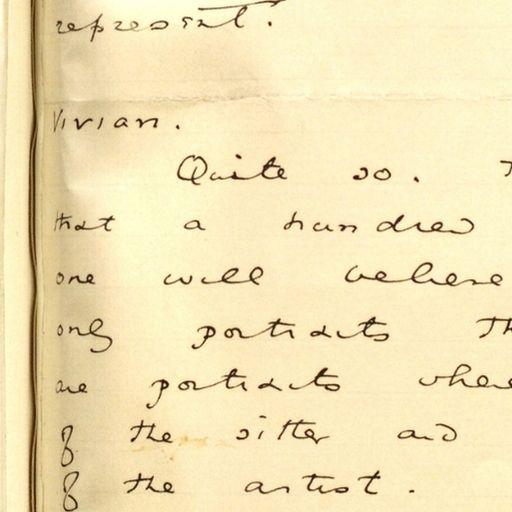 represent.
Vivian.
Quite so.
that a hundred
one will believe
only portraits
are portraits where
of the sitter and
of the artist.